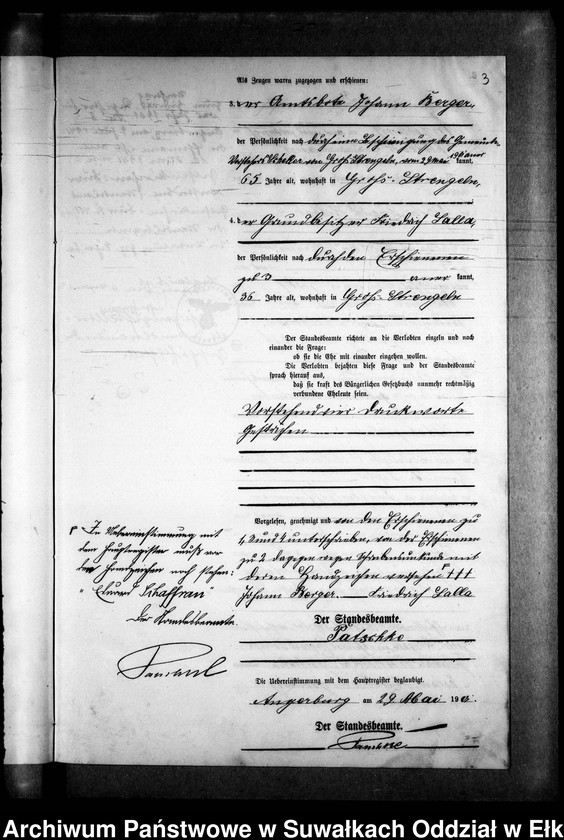 3
Als Zeugen waren zugezogen und erschienen:
3. der Amtsbote Johann Berger,
der Persönlichkeit nach durch eine Bescheinigung des Gemeinde
von Groß Strengeln, vom 29 Mai kannt,
65 Jahre alt, wohnhaft in Groß-Strengeln,
4. der Grundbesitzer Friedrich Salla,
der Persönlichkeit nach durch den Erschienenen
zu 3 kannt,
36 Jahre alt, wohnhaft in Groß-Strengeln
Der Standesbeamte richtete an die Verlobten einzeln und nach
einander die Frage:
ob sie die Ehe mit einander eingehen wollen.
Die Verlobten bejahten diese Frage und der Standesbeamte
sprach hierauf aus,
daß sie kraft des Bürgerlichen Gesetzbuchs nunmehr rechtmäßig
verbundene Eheleute seien.
Vorstehend vier Druckworte
gestrichen
Vorgelesen, genehmigt und von den Erschienenen zu
1, 3 und 4 unterschrieben, von der Erschienenen
zu 2 dagegen wegen Schreibensunkunde mit
deren Handzeichen versehen +++
Johann Berger. Friedrich Salla
Der Standesbeamte.
Patschke
In Uebereinstimmung mit
dem Hauptregister muß vor
dem Handzeichen noch stehen:
"Eduard Schaffran"
Der Standesbeamte.
Die Uebereinstimmung mit dem Hauptregister beglaubigt.
Angerburg am 29 Mai 19
Der Standesbeamte.
Archiwum Państwowe w Suwałkach Oddział w Ełk